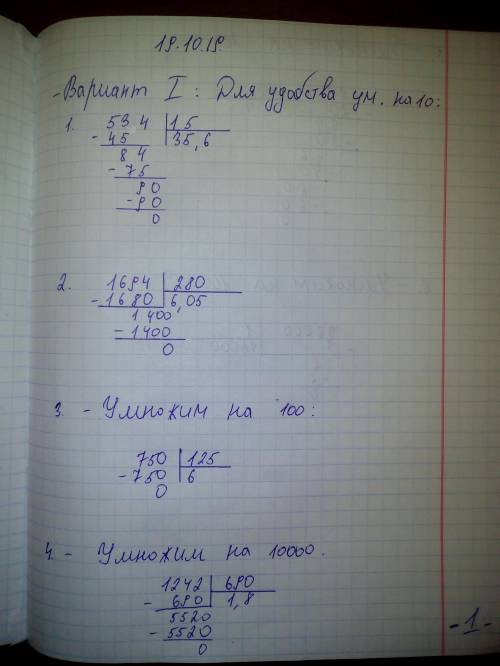 19.10.19
- Вариант I : Для удобства ум. на 10:
1. 534 | 15
- 45 35,6
84
- 75
90
- 90
0
2. 1694 | 280
- 1680 6,05
1 400
- 1400
0
3. - Умножим на 100:
750 | 125
- 750 6
0
4. - Умножим на 10000.
1242 | 690
- 690 1,8
5520
- 5520
0
- 1 -